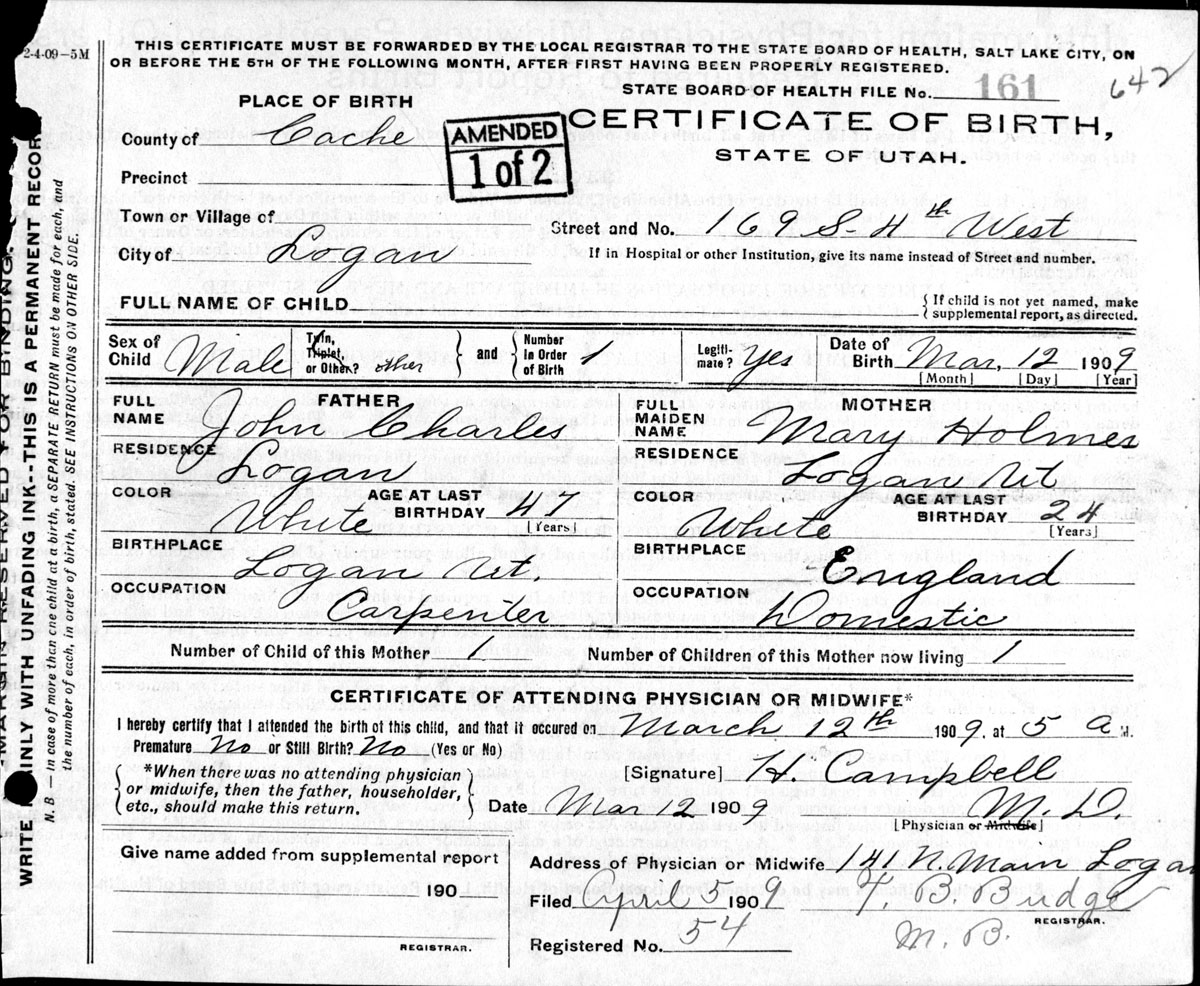 2-4-09-5M
THIS CERTIFICATE MUST BE FORWARDED BY THE LOCAL REGISTRAR TO THE STATE BOARD OF HEALTH, SALT LAKE CITY, ON
OR BEFORE THE 5TH OF THE FOLLOWING MONTH, AFTER FIRST HAVING BEEN PROPERLY REGISTERED.
STATE BOARD OF HEALTH FILE No. 161
642
PLACE OF BIRTH
CERTIFICATE OF BIRTH,
STATE OF UTAH.
AMENDED
1 of 2
County of Cache
Precinct
Town or Village of
Street and No. 169 S-4th West
City of Logan
If in Hospital or other Institution, give its name instead of Street and number.
FULL NAME OF CHILD
{ If child is not yet named, make
supplemental report, as directed.
Sex of Child Male
Twin, Triplet, or Other? other
and
Number in Order of Birth 1
Legiti-mate? Yes
Date of Birth Mar, 12 1909
[Month] [Day] [Year]
FATHER
FULL NAME John Charles
RESIDENCE Logan
COLOR White
AGE AT LAST BIRTHDAY 47
[Years]
BIRTHPLACE Logan Ut.
OCCUPATION Carpenter
MOTHER
FULL MAIDEN NAME Mary Holmes
RESIDENCE Logan Ut
COLOR White
AGE AT LAST BIRTHDAY 24
[Years]
BIRTHPLACE England
OCCUPATION Domestic
Number of Child of this Mother 1
Number of Children of this Mother now living 1
CERTIFICATE OF ATTENDING PHYSICIAN OR MIDWIFE*
I hereby certify that I attended the birth of this child, and that it occured on March 12th 1909. at 5 a M.
Premature No or Still Birth? No (Yes or No)
{ *When there was no attending physician
or midwife, then the father, householder,
etc., should make this return. }
[Signature] H. Campbell
Date Mar 12 1909 M.D.
[Physician or Midwife]
Give name added from supplemental report
190
REGISTRAR.
Address of Physician or Midwife 141 N. Main Logan
Filed April 5 1909 T. B. Budge
REGISTRAR.
M. D.
Registered No. 54
MARGIN RESERVED FOR BINDING.
WRITE PLAINLY WITH UNFADING INK--THIS IS A PERMANENT RECORD
N. B. — In case of more than one child at a birth, a SEPARATE RETURN must be made for each, and
the number of each, in order of birth, stated. SEE INSTRUCTIONS ON OTHER SIDE.